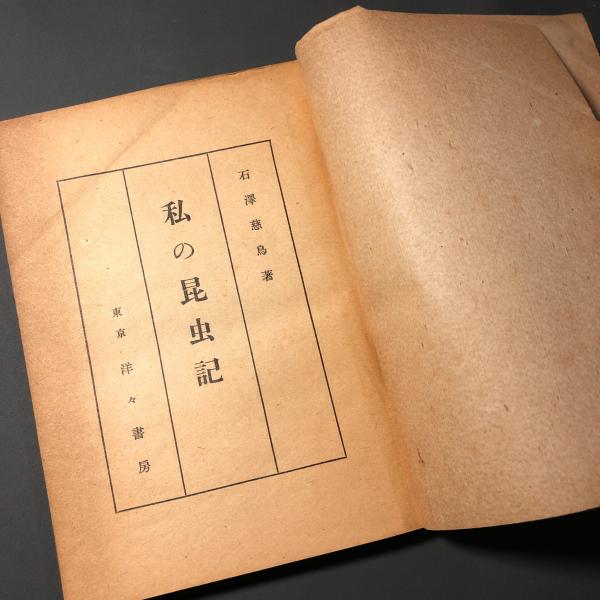 石澤慈鳥著
私の昆虫記
東京 洋々書房